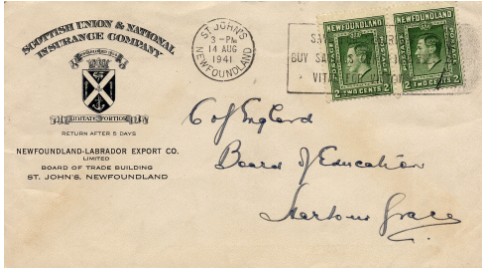 SCOTTISH UNION & NATIONAL
INSURANCE COMPANY
RETURN AFTER 5 DAYS
NEWFOUNDLAND-LABRADOR EXPORT CO.
LIMITED
BOARD OF TRADE BUILDING
ST. JOHN'S, NEWFOUNDLAND
ST. JOHN'S
3 - PM
14 AUG
1941
NEWFOUNDLAND
BUY
VITAL
NEWFOUNDLAND
POSTAGE
2 TWO CENTS 2
NEWFOUNDLAND
POSTAGE
2 TWO CENTS 2
C of England
Board of Education
Harbour Grace